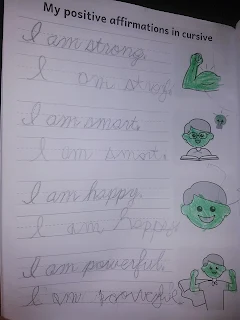 My positive affirmations in cursive
I am strong.
I am strng.
I am smart.
I am smart.
I am happy.
I am happy.
I am powerful.
I am